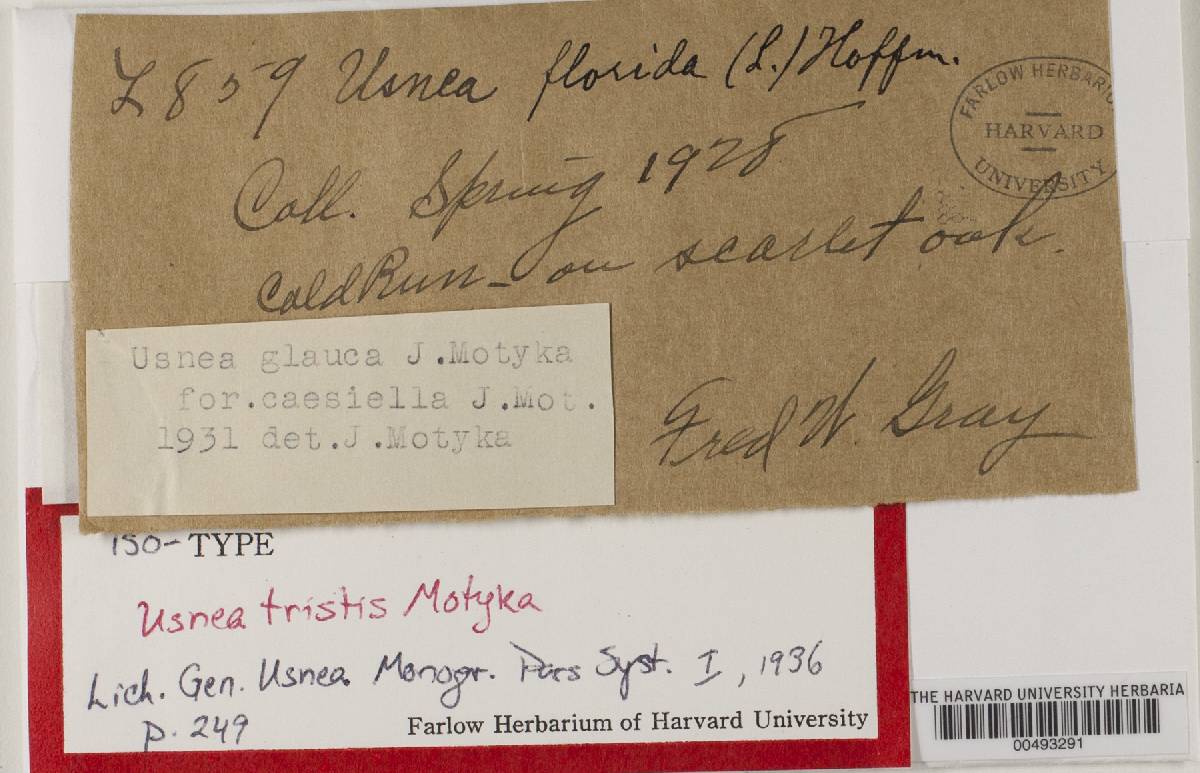 L 859 Usnea florida (L.) Hoffm.
Coll. Spring 1928
Cold Run - on scarlet oak.
Fred W. Gray
FARLOW HERBARIU
HARVARD
UNIVERSITY
Usnea glauca J.Motyka
for.caesiella J.Mot.
1931 det.J.Motyka
ISO-TYPE
Usnea tristis Motyka
Lich. Gen. Usnea Monogr. Pars Syst. I, 1936
p. 249
Farlow Herbarium of Harvard University
THE HARVARD UNIVERSITY HERBARIA
00493291